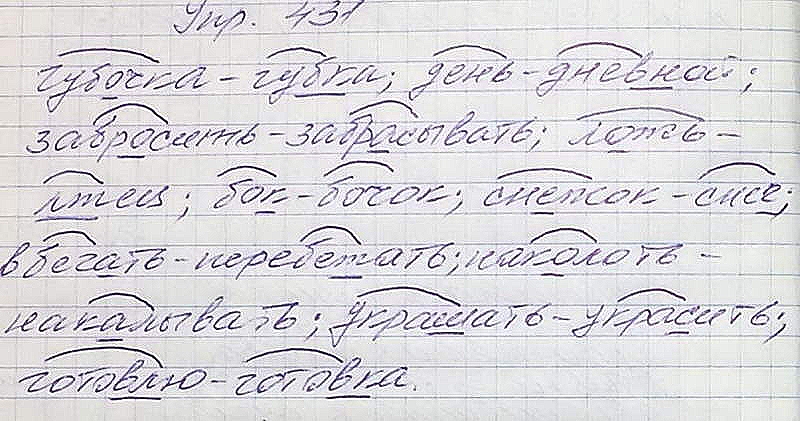 Упр. 431
губочка - губка; день - дневной;
забросить - забрасывать; ложь -
лжец; бок - бочок; снежок - снег;
вбегать - перебежать; наколоть -
накалывать; украшать - украсить;
готовлю - готовка.